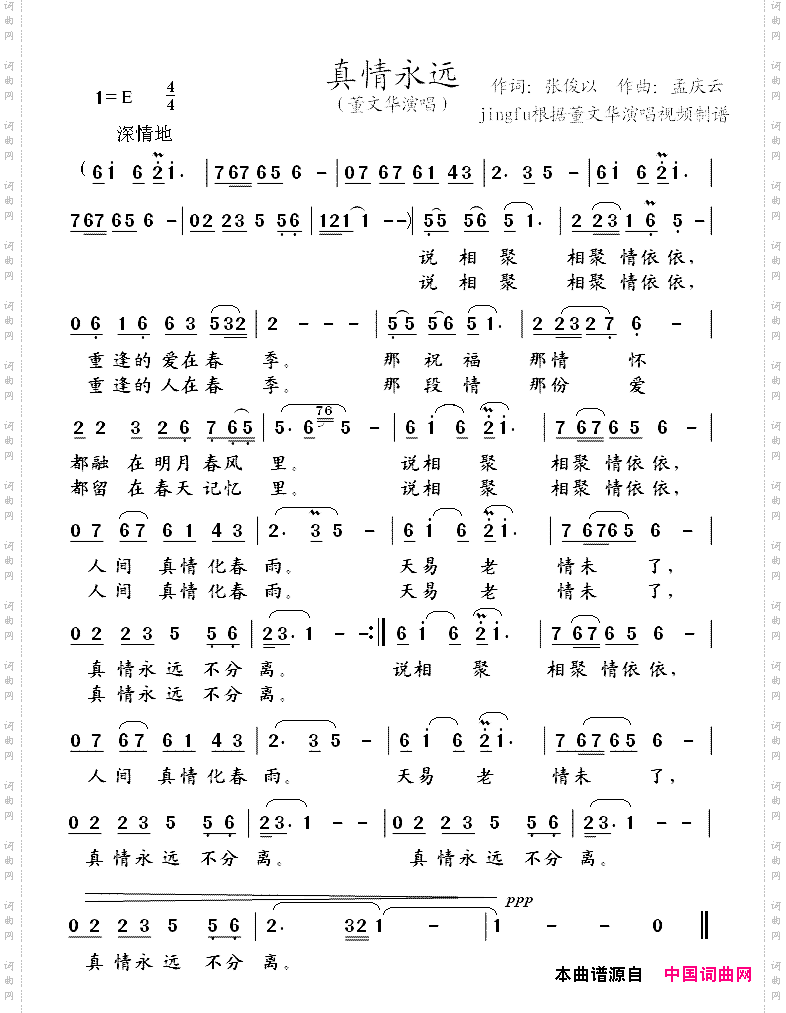 真情永远
1=E 4/4
（董文华演唱）
作词：张俊以 作曲：孟庆云
jingfu根据董文华演唱视频制谱
深情地
(6i 6 2i. | 767 65 6 - | 07 67 61 43 | 2. 3 5 - | 6i 6 2i. |
767 656 - | 02 23 5 56 | 121 1 - -) | 55 56 5 1. | 2 231 6 5 - |
说 相 聚 相聚 情依依，
说 相 聚 相聚 情依依，
0 6 1 6 6 3 532 | 2 - - - | 55 56 51. | 2 2327 6 - |
重 逢的 爱在春 季。 那 祝 福 那情 怀
重 逢的 人在春 季。 那 段 情 那份 爱
2 2 3 2 6 7 65 | 5. 6 76 5 - | 6 i 6 2i. | 7 67 65 6 - |
都融 在 明月 春风 里。 说相 聚 相聚 情依依，
都留 在 春天 记忆 里。 说相 聚 相聚 情依依，
0 7 67 6 1 4 3 | 2. 3 5 - | 6 i 6 2i. | 7 6765 6 - |
人 间 真情 化春 雨。 天易 老 情未 了，
人 间 真情 化春 雨。 天易 老 情未 了，
0 2 2 3 5 5 6 | 23. 1 - - :| 6 i 6 2i. | 7 67 65 6 - |
真 情永 远 不分 离。 说相 聚 相聚 情依依，
真 情永 远 不分 离。
0 7 67 61 43 | 2. 3 5 - | 6 i 6 2i. | 7 67 65 6 - |
人 间 真情 化春 雨。 天易 老 情未 了，
0 2 2 3 5 5 6 | 23. 1 - - | 0 2 2 3 5 5 6 | 23. 1 - - |
真 情永 远 不分 离。 真 情永 远 不分 离。
ppp
0 2 2 3 5 5 6 | 2. 32 1 - | 1 - - 0 ‖
真 情永 远 不分 离。
本曲谱源自 中国词曲网